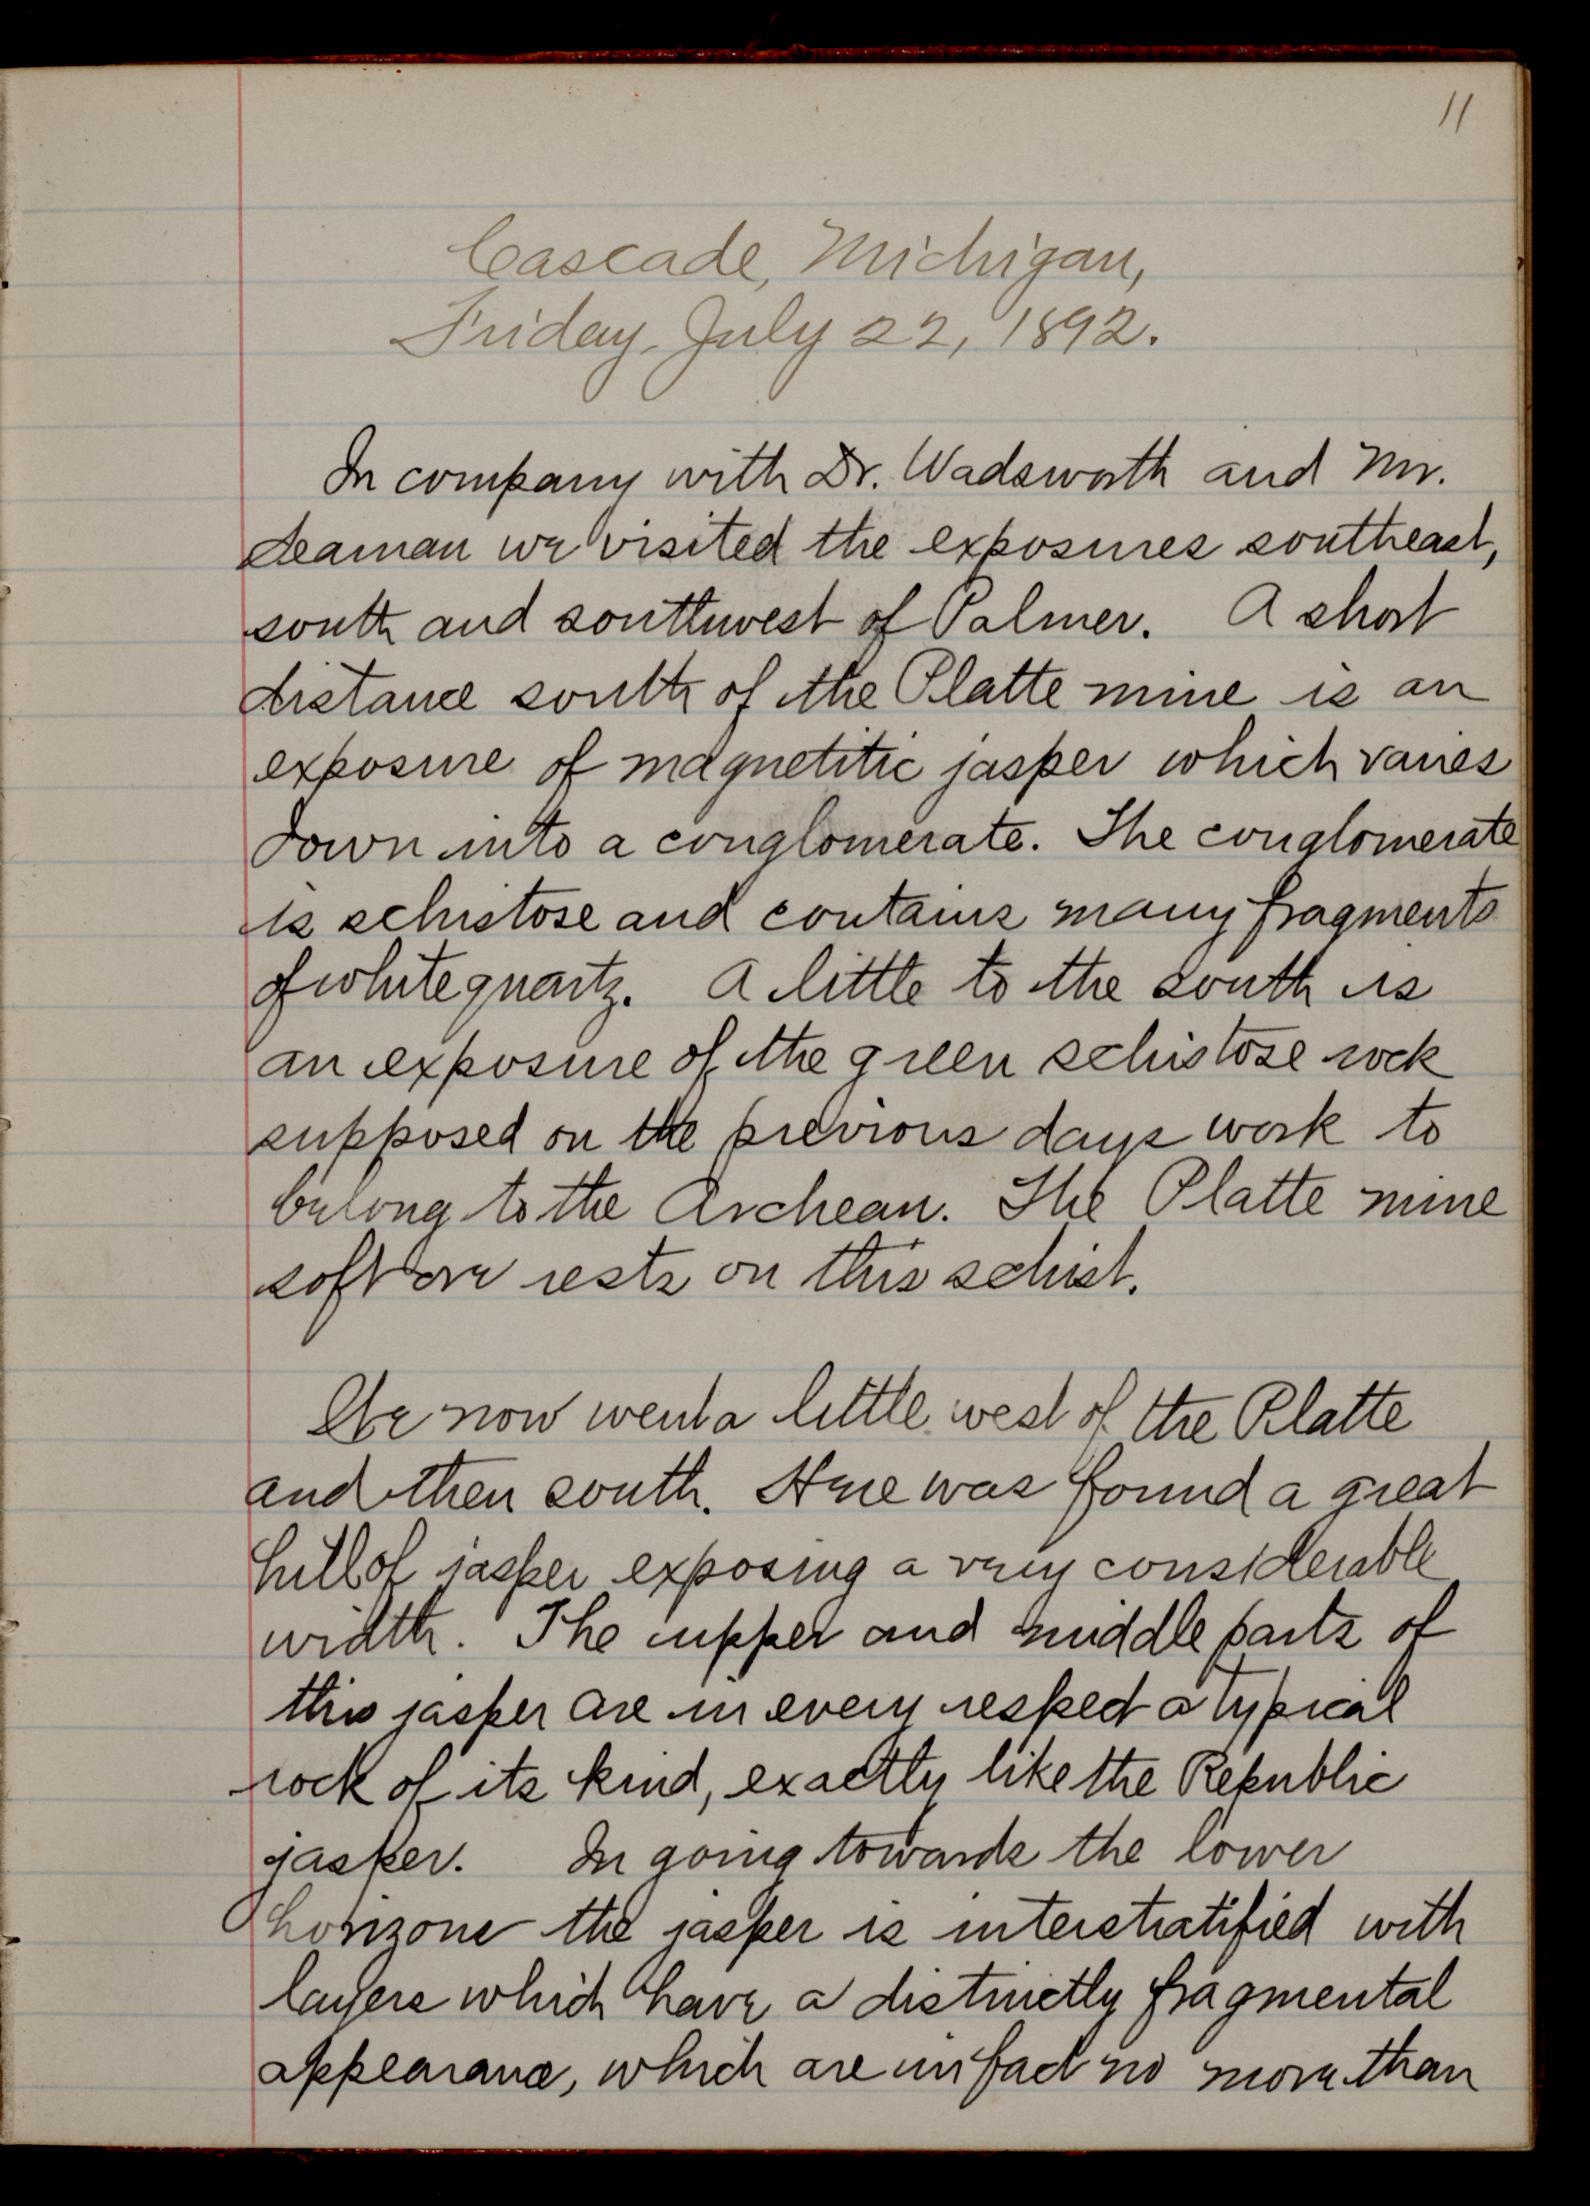 11
Cascade, Michigan,
Friday, July 22, 1892.
In company with Dr. Wadsworth and Mr.
Seaman we visited the exposures southeast,
south and southwest of Palmer. A short
distance south of the Platte mine is an
exposure of magnetitic jasper which varies
down into a conglomerate. The conglomerate
is schistose and contains many fragments
of white quartz. A little to the south is
an exposure of the green schistose rock
supposed on the previous days work to
belong to the Archean. The Platte mine
soft ore rests on this schist.
We now went a little west of the Platte
and then south. Here was found a great
hill of jasper exposing a very considerable
width. The upper and middle parts of
this jasper are in every respect a typical
rock of its kind, exactly like the Republic
jasper. In going towards the lower
horizone the jasper is interstratified with
layers which have a distinctly fragmental
appearance, which are in fact no more than